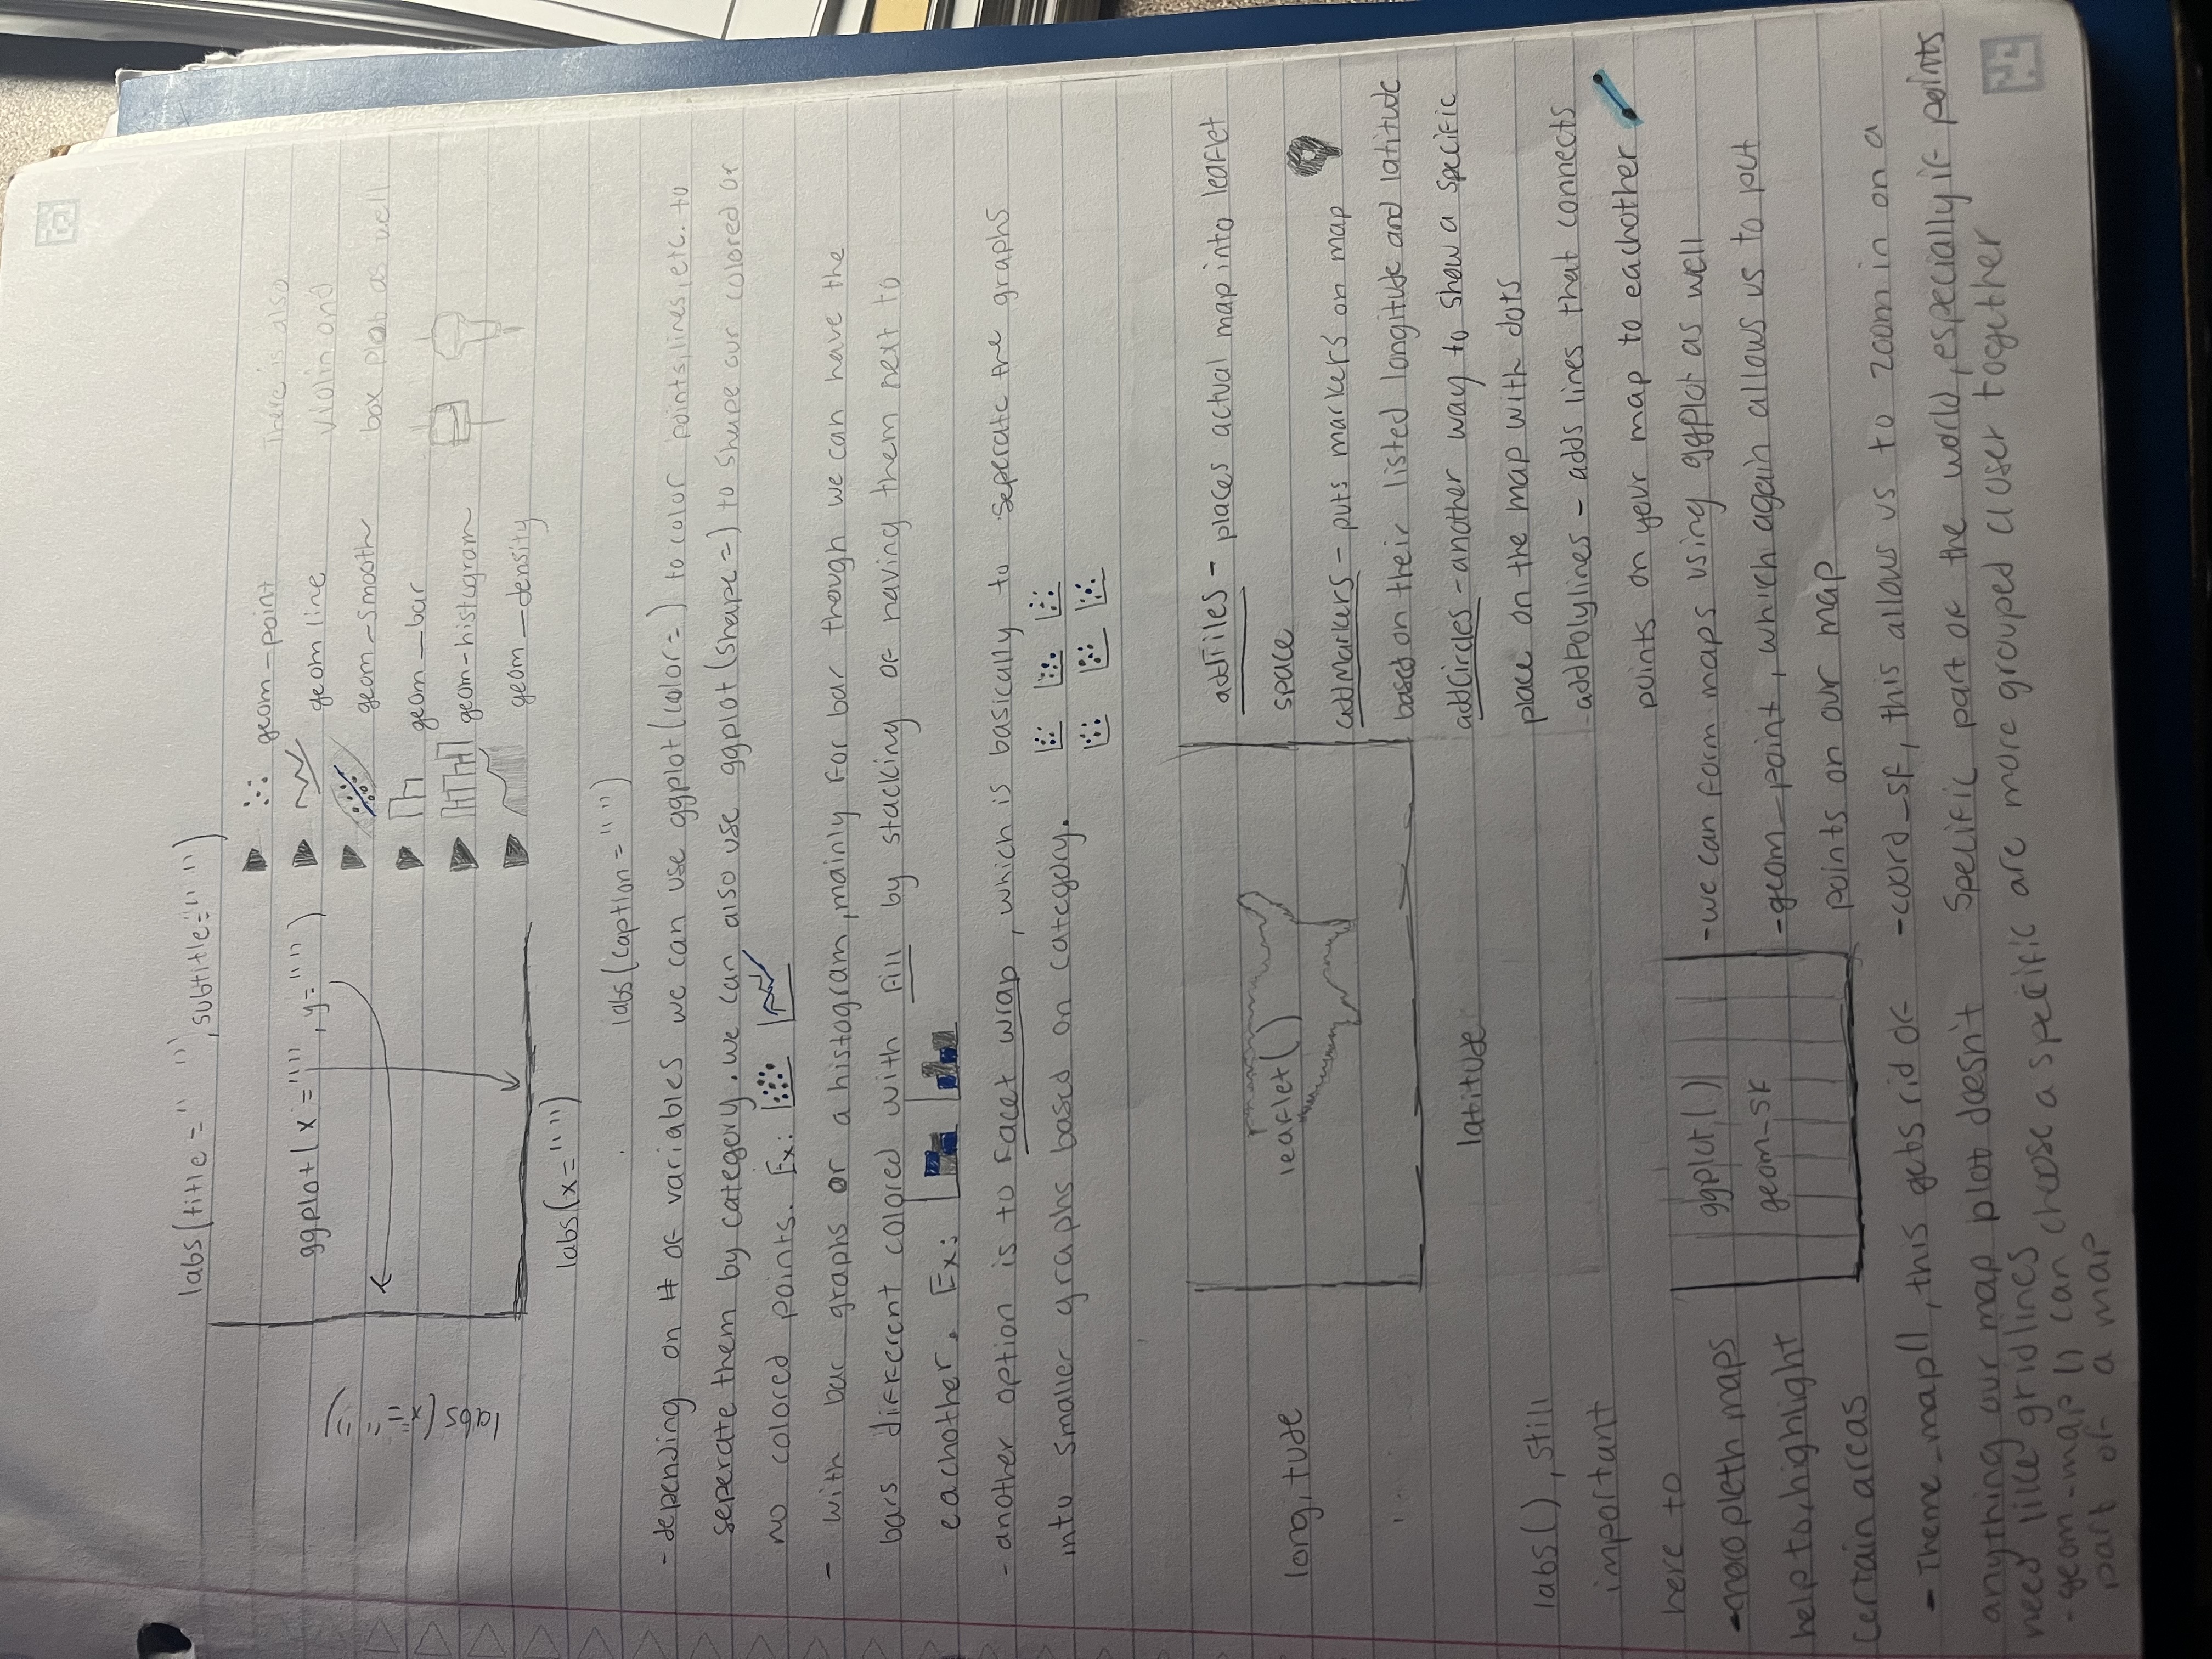 labs(title = " ", subtitle=" ")
ggplot(x ="", y="")
labs(x="")
labs(x="")
labs(caption = "")
geom-point
geom line
geom-smooth
geom_bar
geom-histogram
geom_density
There is also
violin and
box plot as well
- depending on # of variables we can use ggplot(color= ) to color points, lines, etc. to
seperate them by category. we can also use ggplot (shape=) to shape our colored or
no colored points. Ex:
- with bar graphs or a histogram, mainly for bar though we can have the
bars different colored with fill by stacking or having them next to
eachother. Ex:
- another option is to facet wrap, which is basically to seperate the graphs
into smaller graphs based on category.
longitude
leaflet()
latitude
addTiles - places actual map into leaflet
space
addMarkers - puts markers on map
based on their listed longitude and latitude
addCircles - another way to show a specific
place on the map with dots
- addPolylines - adds lines that connects
points on your map to eachother
labs(), still
important
here to
- choropleth maps
help to highlight
certain areas
ggplot()
geom_sf
- we can form maps using ggplot as well
- geom_point, which again allows us to put
points on our map
- coord_sf, this allows us to zoom in on a
specific part of the world, especially if points
are more grouped closer together
- Theme_map(), this gets rid of
anything our map plot doesn't
need like gridlines
- geom-map () can choose a specific
part of a map